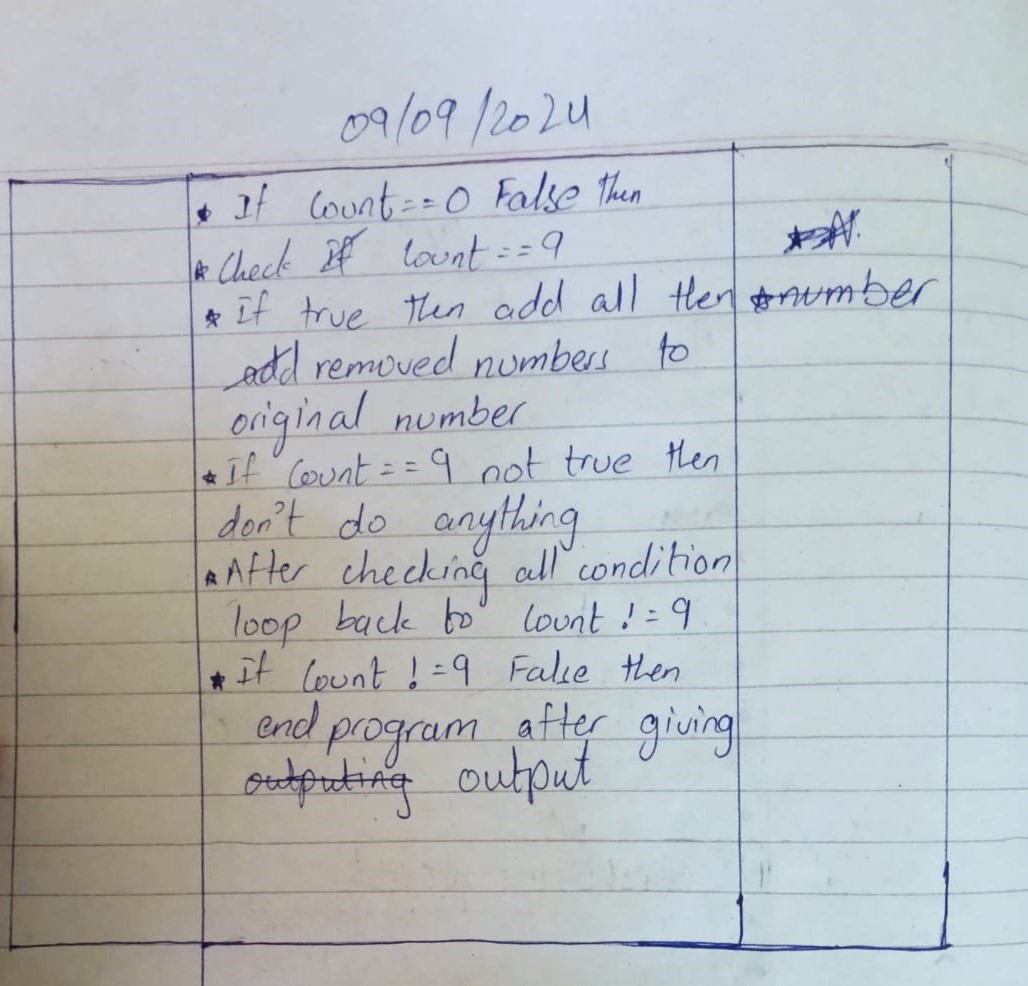 09/09/2024
* If Count==0 False then
* Check If Count==9
* If true then add all then
add removed numbers to
original number
* If Count==9 not true then
don't do anything
* After checking all condition
loop back to Count !=9
* If Count !=9 False then
end program after giving
outputing output
* number